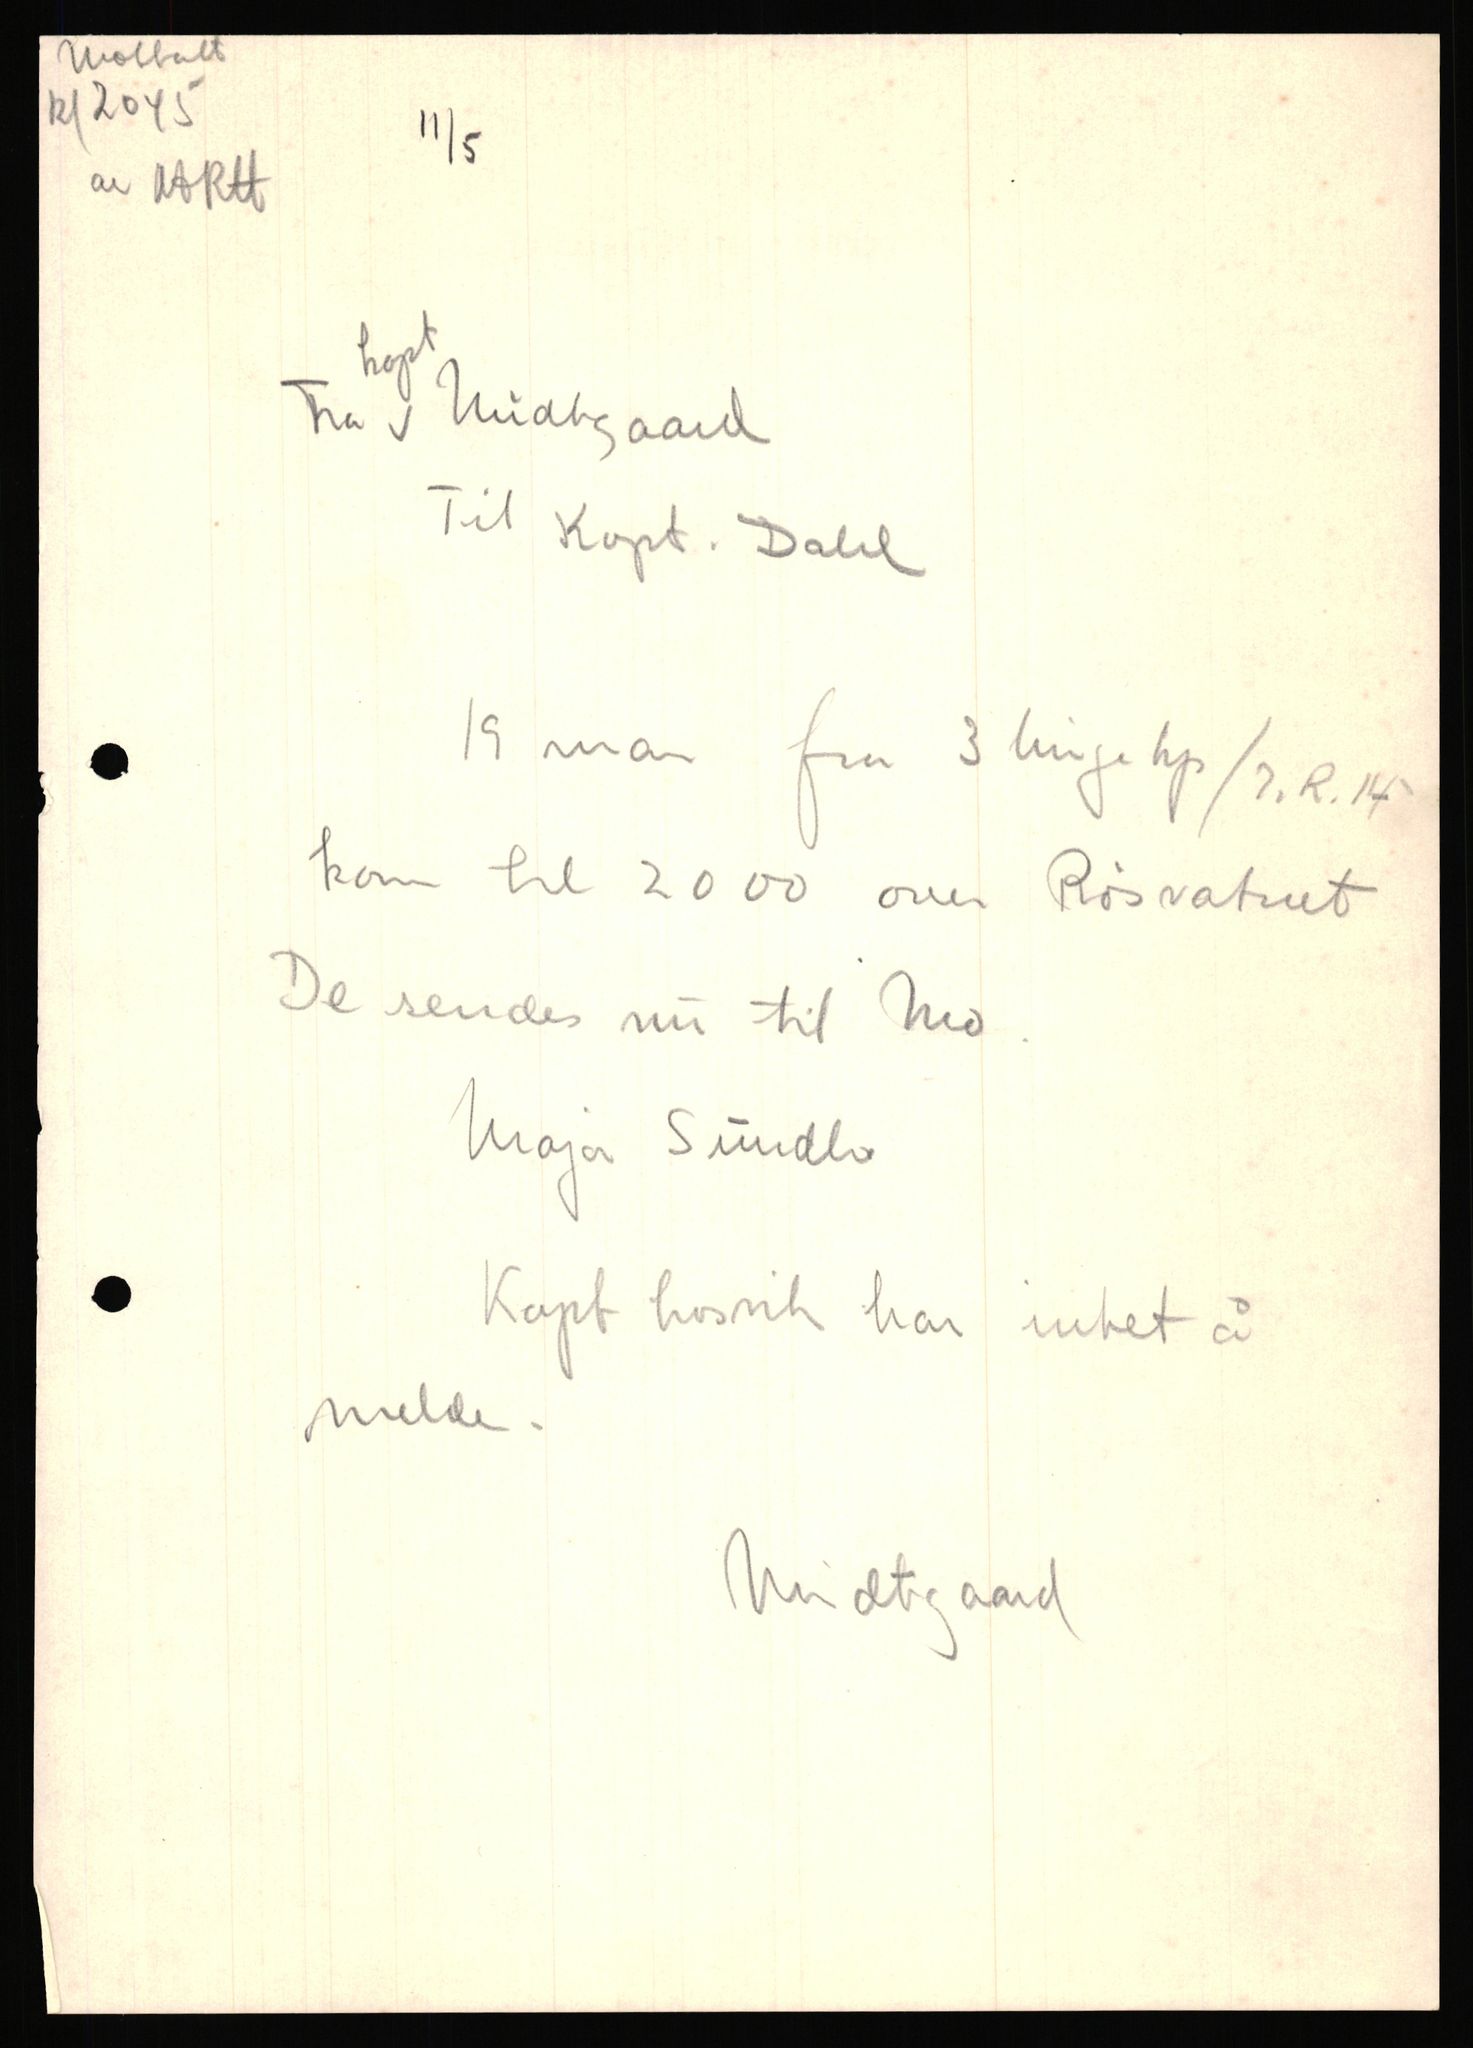 Mottatt
kl 2045
av
11/5
kapt
Fra Midtgaard
Til Kapt. Dahl
19 man fra 3 lingekp/I.R.14
kom til 2000 over Røsvatnet
De sendes nu til Mo.
Major Sundlo
Kapt hosvik har intet å
melde.
Midtgaard